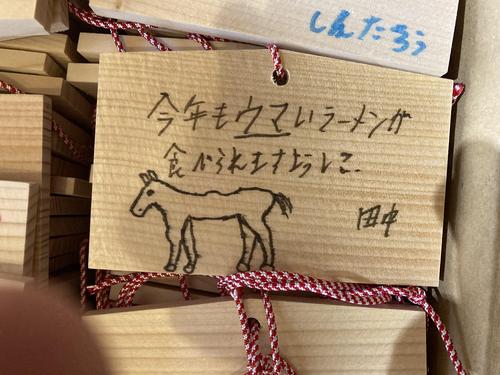 しんたろう
今年もウマいラーメンが
食べられますように。
田中